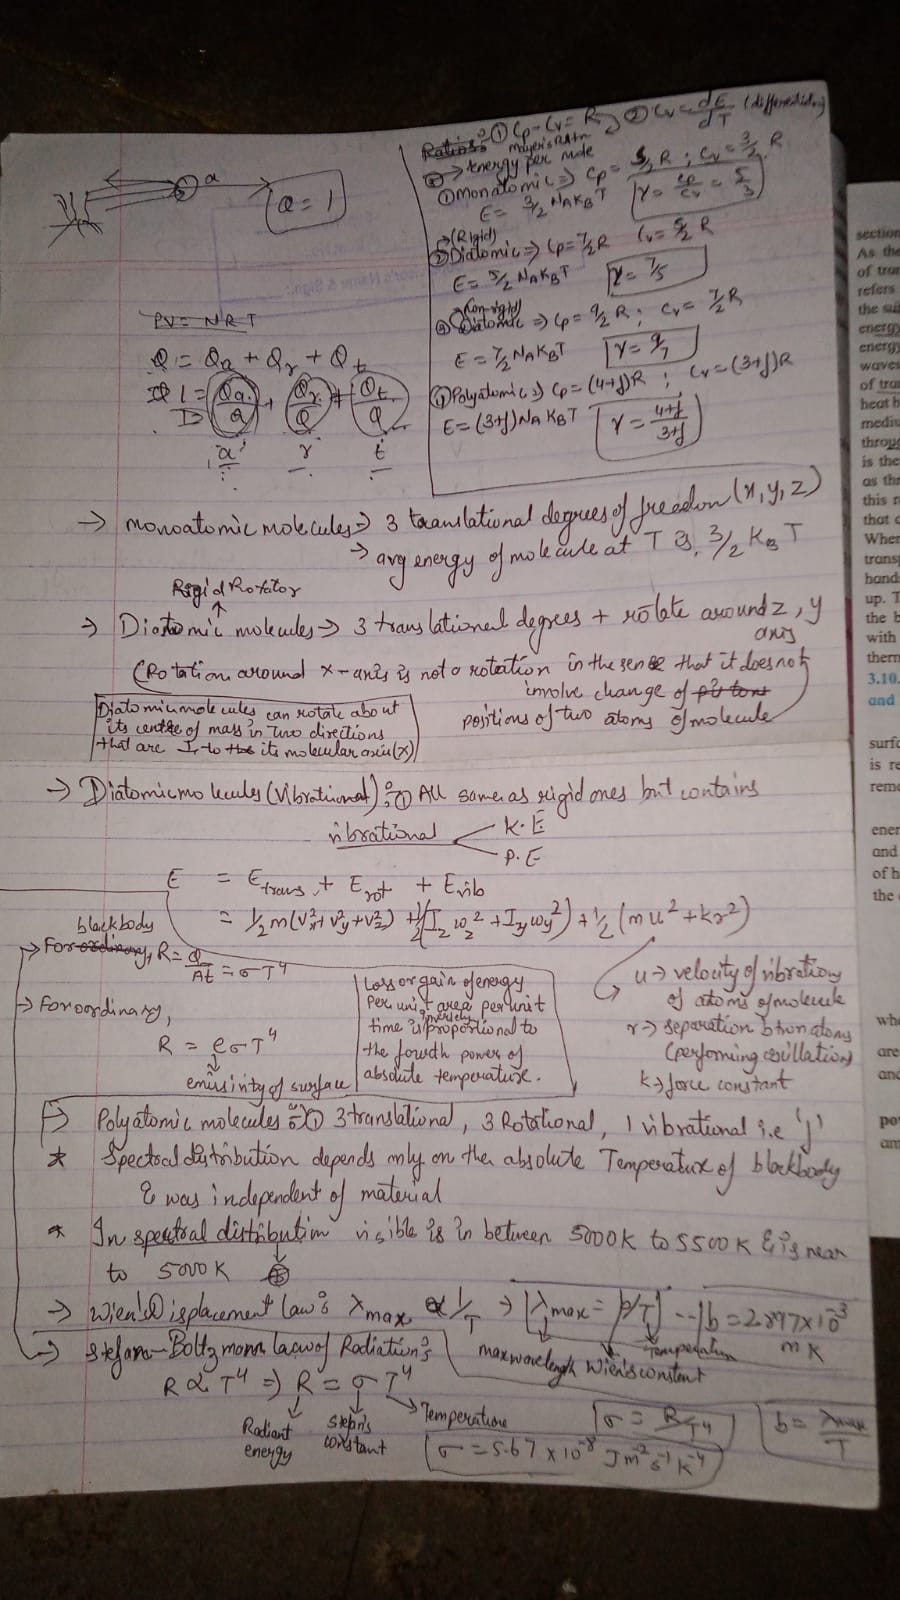 Ratios: ① Cp - Cv = R, ② Cv = dE/dT (differentiation)
Mayer's Reltn
→ energy per mole
① monatomic ⇒ Cp = 5/2 R ; Cv = 3/2 R
E = 3/2 NAKBT γ = Cp/Cv = 5/3
(Rigid)
② Diatomic ⇒ Cp = 7/2 R Cv = 5/2 R
E = 5/2 NAKBT γ = 7/5
(Non-rigid)
③ Diatomic ⇒ Cp = 9/2 R ; Cv = 7/2 R
E = 7/2 NAKBT γ = 9/7
④ Polyatomic ⇒ Cp = (4+f)R ; Cv = (3+f)R
E = (3+f)NAKBT γ = 4+f/3+f
a
a = 1
PV = NRT
Q = Qa + Qr + Qt
1 = Qa/Q + Qr/Q + Qt/Q
'a' r t
→ monoatomic molecules ⇒ 3 translational degrees of freedom (x, y, z)
→ avg energy of molecule at T is, 3/2 KBT
Rigid Rotator
→ Diatomic molecules ⇒ 3 translational degrees + rotate around z, y
axis
(Rotation around x-axis is not a rotation in the sense that it does not
involve change of
positions of two atoms of molecule
Diatomic molecules can rotate about
its centre of mass in two directions
that are ⊥ to its molecular axis (x)
→ Diatomic molecules (vibrational) : ① All same as rigid ones but contains
vibrational K.E
P.E
E = Etrans + Erot + Evib
= 1/2 m(Vx² + Vy² + Vz²) + 1/2 (Iz ωz² + Iy ωy²) + 1/2 (mu² + kr²)
blackbody
→ For ordinary, R = Q/At = σT⁴
→ For ordinary,
R = eσT⁴
emissivity of surface
Loss or gain of energy
per unit area per unit
time is inversely proportional to
the fourth power of
absolute temperature.
u → velocity of vibrations
of atoms of molecule
r → separation btwn atoms
(performing oscillation)
k → force constant
→ Polyatomic molecules : ① 3 translational, 3 Rotational, 1 vibrational i.e 'f'
* Spectral distribution depends only on the absolute Temperature of blackbody
& was independent of material
* In spectral distribution visible is in between 5000K to 5500K & is near
to 5000K
→ Wien's Displacement law : λmax ∝ 1/T → λmax = b/T -- b = 2.897 × 10⁻³
m K
max wavelength Wien's constant Temperature
→ Stefan-Boltzmann law of Radiation :
R ∝ T⁴ ⇒ R = σT⁴
Radiant
energy
Stefn's
constant
Temperature
σ = R/T⁴
b = λmax/T
σ = 5.67 × 10⁻⁸ Jm⁻²s⁻¹K⁻⁴
section
As the
of tran
refers
the su
energy
energy
waves
of tran
heat b
mediu
throug
is the
as the
this r
that c
When
trans
hand
up. T
the b
with
them
3.10.
and
surfa
is re
rem
ener
and
of h
the
whe
are
and
po
am